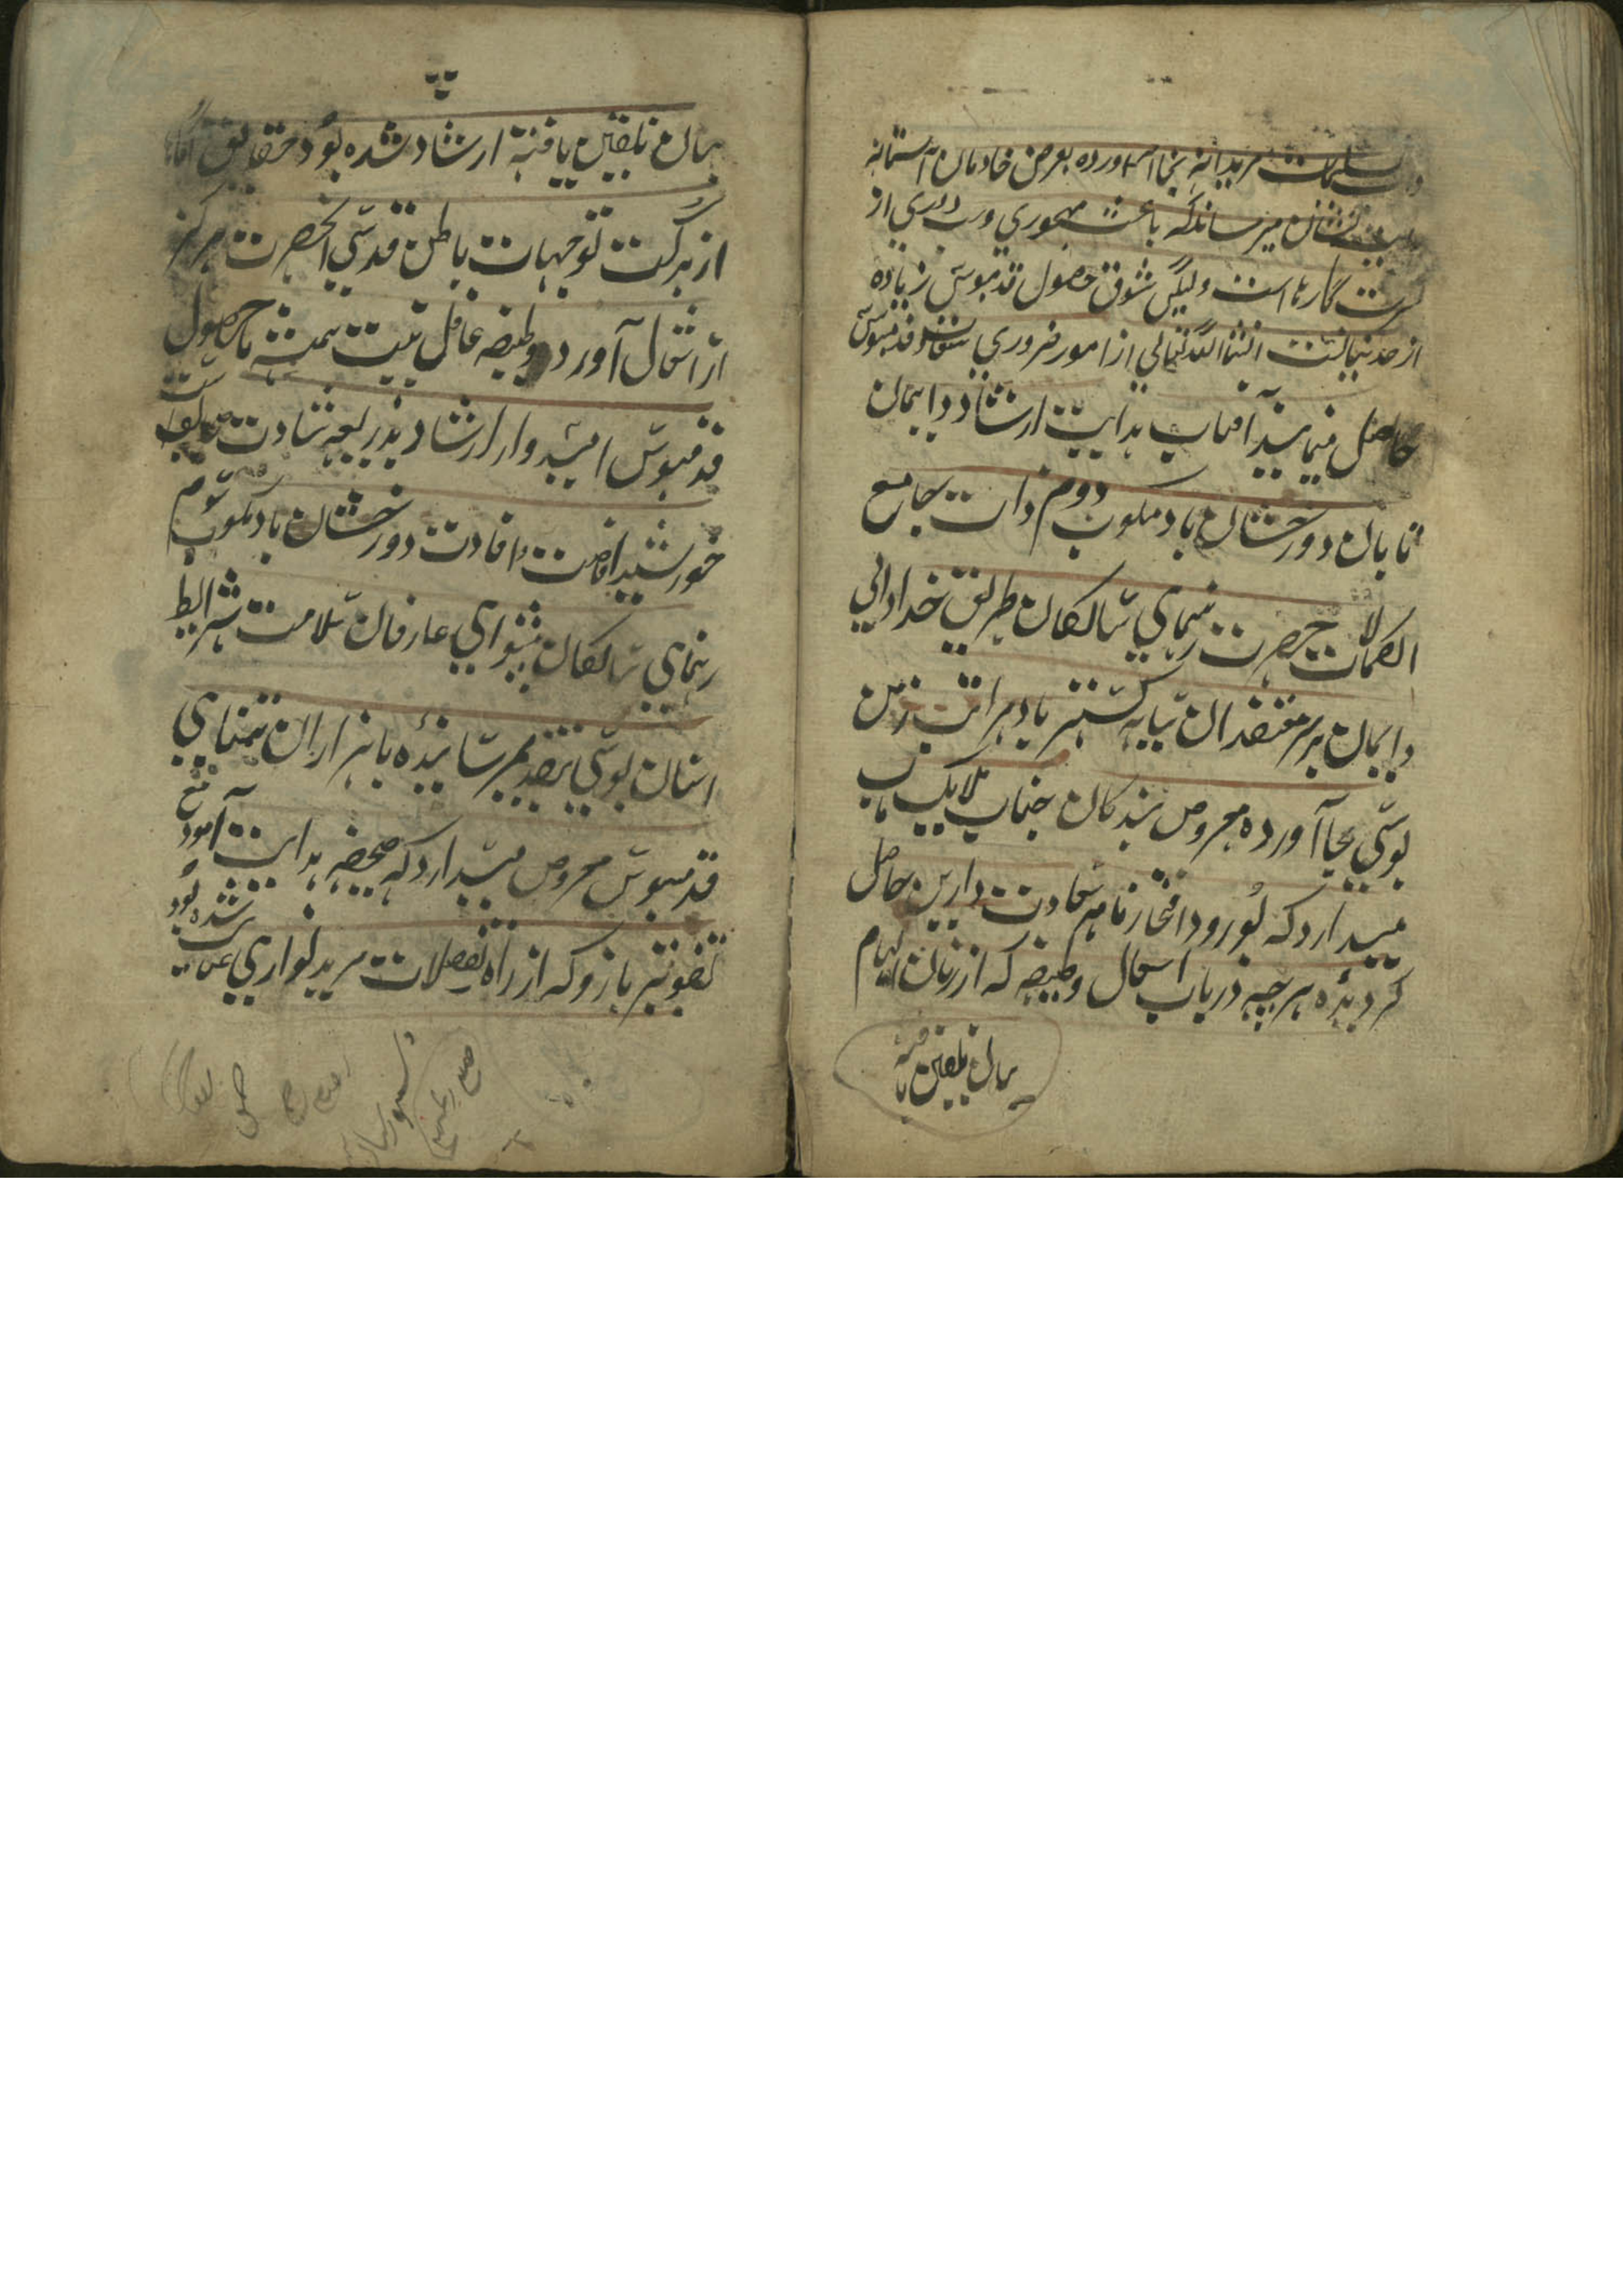 تسلیمات مریدانه بجا آورده بعرض خادمان آستانه
نشان میرساند که باعث مهجوری و دوری از
کثرت کارها است ولیکن شوق حصول قدمبوسی زیاده
از حد نهایتست انشاالله تعالی از امور ضروری سعادت قدمبوسی
حاصل مینماید آفتاب هدایت ارشاد دایمان
تابان دورخشان باد مکتوب دوم ذات جامع
الکمالات حضرت رهنمای سالکان طریق خدادانی
دایمان بر سر معتقدان سایه گستر باد مراتب زمین
بوسی بجا آورده معروض بندگان جناب ملایک مآب
میدارد که بورود افتخارنامه سعادت دارین حاصل
گردیده هرچه در باب اشغال وظیفه که از زبان الهام
بیان تلقین یافته
بیان تلقین یافته ارشاد شده بود حقایق آگاها
از برکت توجهات باطن قدسی آنحضرت هرگز
از اشغال آورد وظیفه غافل نیست همیشه تا حصول
قدمبوسی امیدوار ارشاد بذریعه
خورشید افاضت و افادت دورخشان باد مکتوب سوم
رهنمای سالکان پیشوای عارفان سلامت شرایط
آستان بوسی بتقدیم رسانیده با هزاران تمنای
قدمبوسی معروض میدارد که صحیفه هدایت آمود
تفویتر بازو که از راه تفضلات مرید نوازی عنایت شده بود